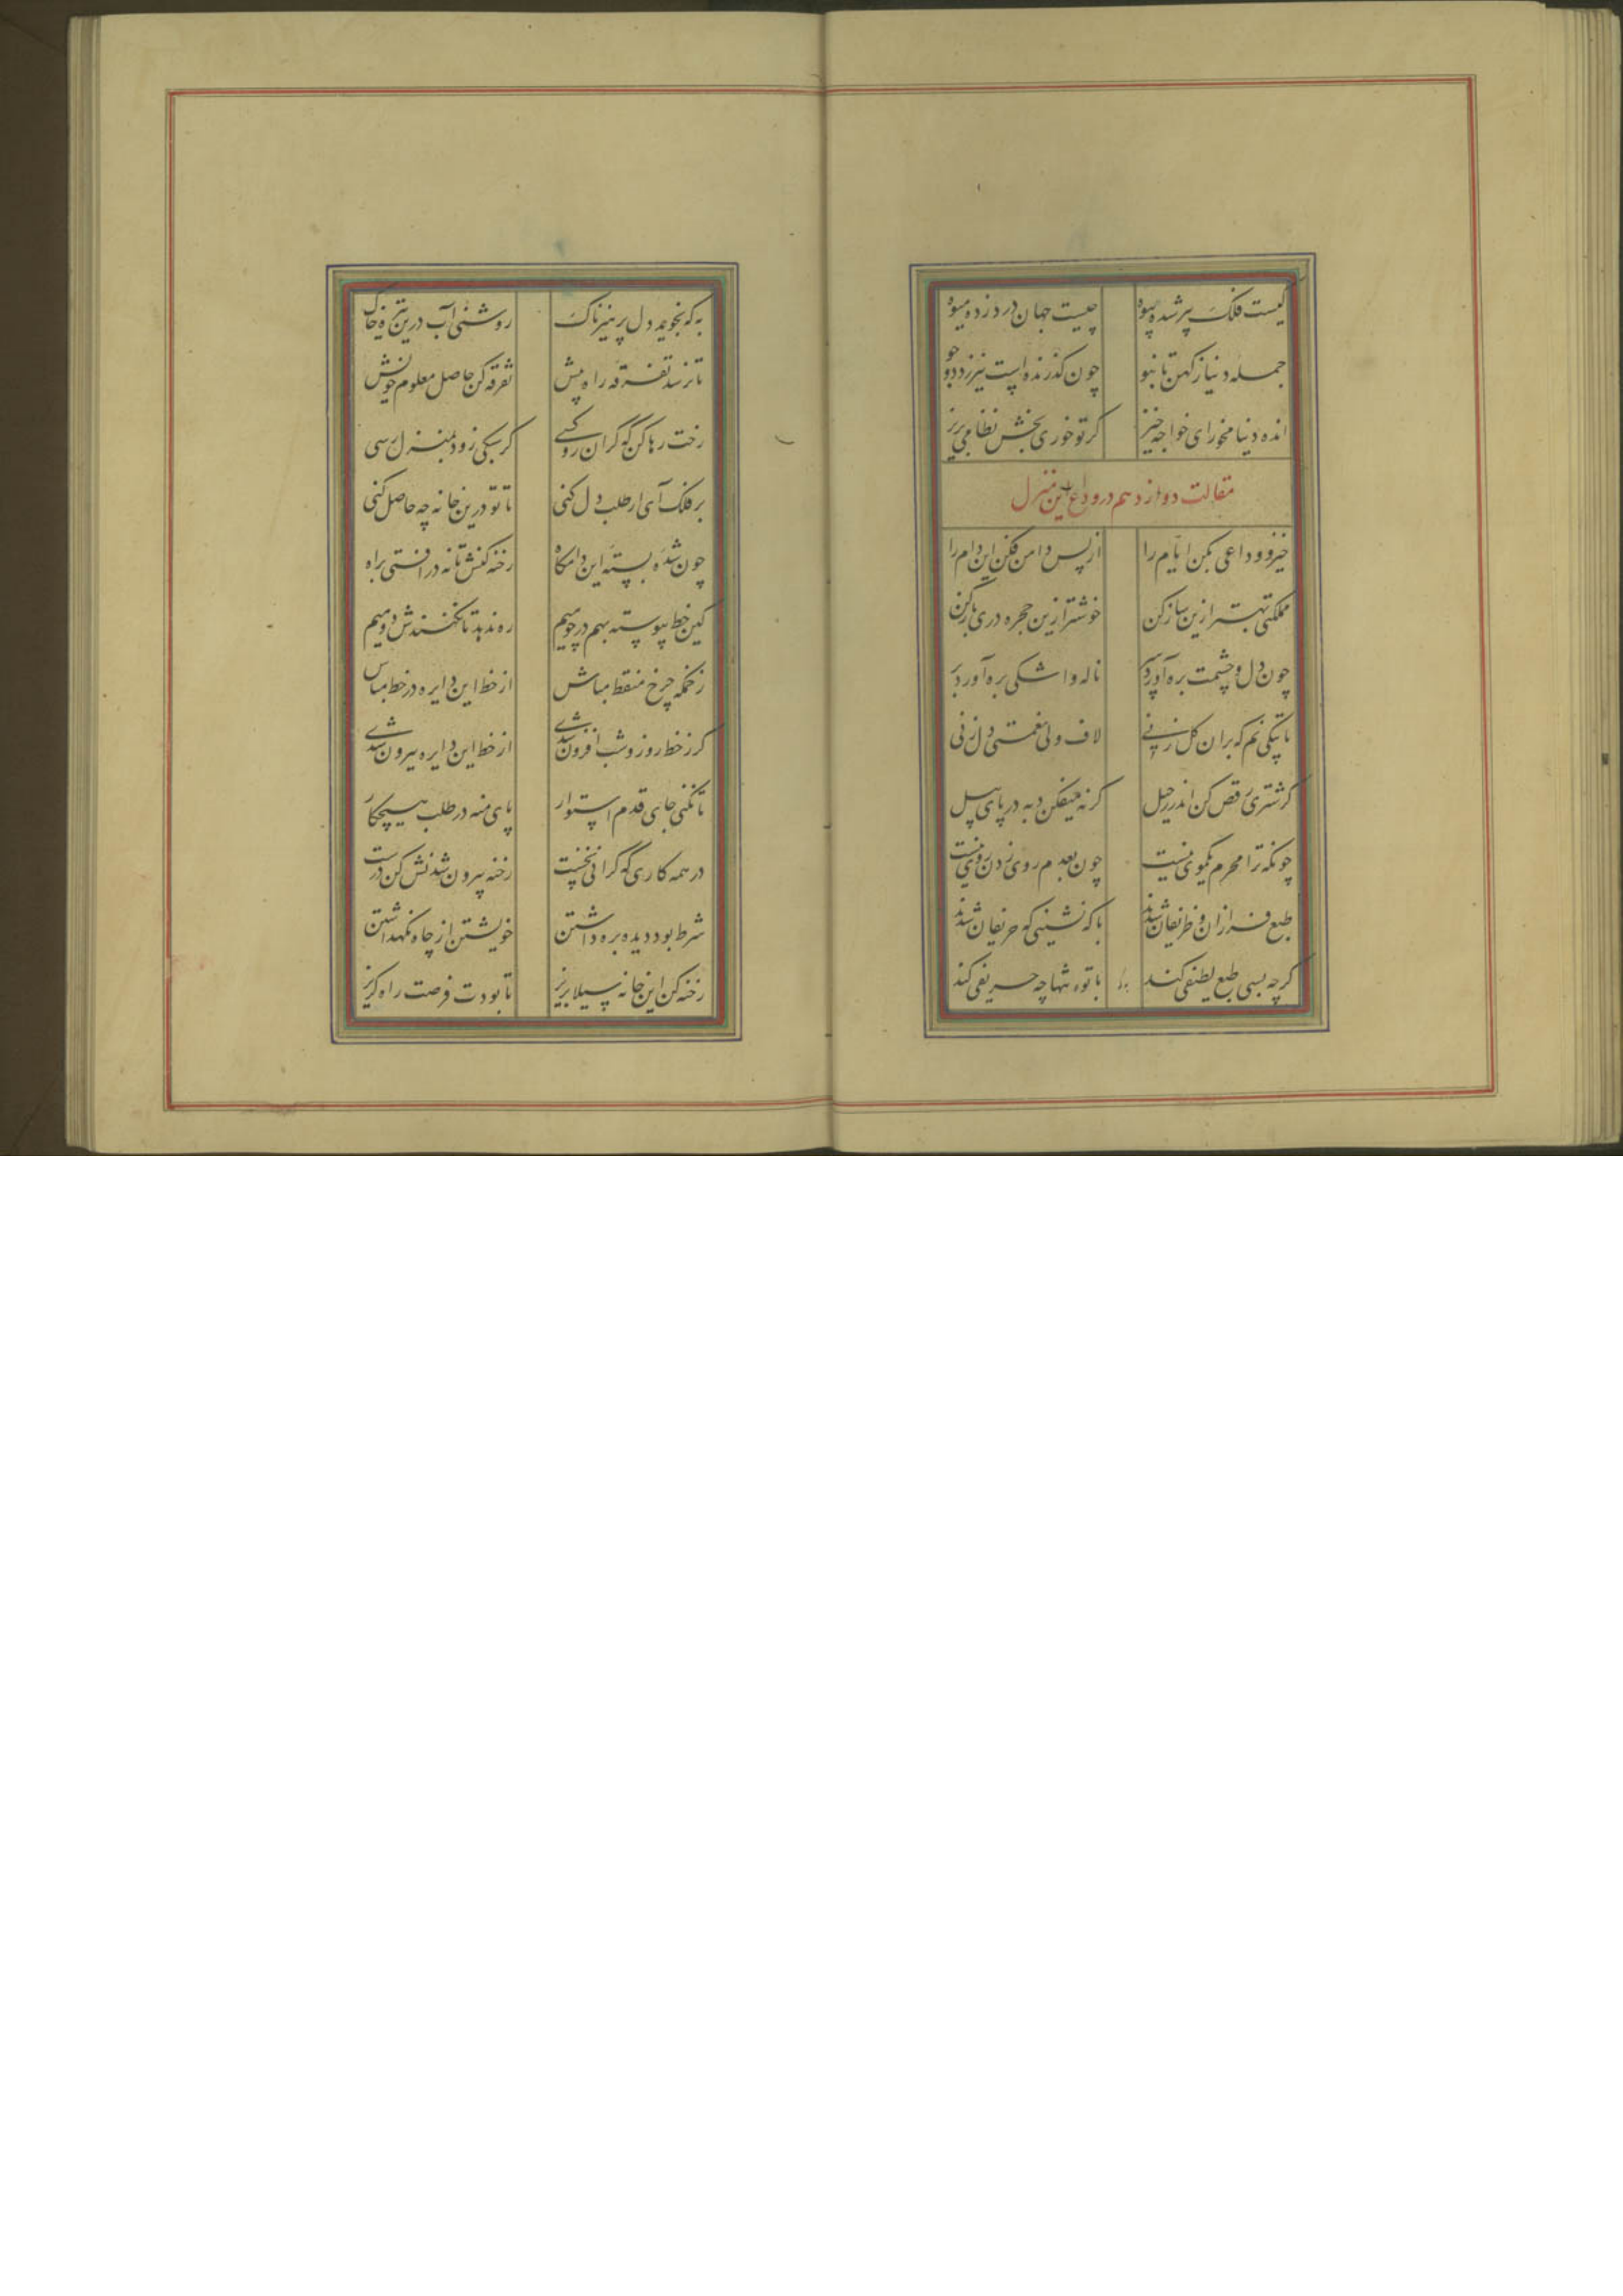 کیست فلک پیر شده بیوه چیست جهان درد زده میوه
جمله دنیا ز کهن تا بنو چون گذرنده است نیرزد دو جو
انده دنیا مخور ای خواجه خیز کر تو خوری بخش نظامی بریز
مقالت دوازدهم در وداع این منزل
خیز و وداعی بکن ایام را از پس دامن فکن این دام را
مملکتی بهتر ازین ساز کن خوشتر ازین حجره دری باز کن
چون دل و چشمت بره آورد سر ناله و اشکی بره آورد بر
تا بیکی نم که بران کل زنی لاف ولی نعمتی دل زنی
کر شتری رقص کن اندر رحیل کرنه میفکن دبه در پای پیل
چونکه ترا محرم یکموی نیست چون بعدم روی زدن روی نیست
طبع فرازان و ظریفان شدند با که نشینی که حریفان شدند
کرچه بسی طبع لطیفی کند با توء تنها چه حریفی کند
به که بجوید دل پرهیزناک روشنی آب درین تیره خاک
تا نرسد تفرقه راه پیش تفرقه کن حاصل معلوم خویش
رخت رها کن که کران رو کسی کز سبکی زود بمنزل رسی
بر فلک آی ار طلب دل کنی تا تو درین خانه چه حاصل کنی
چون شده بسته این دامکاه رخنه کنش تا نه در افتی براه
کین خط پیوسته بهم در چو میم ره ندهد تا نکنندش دو نیم
زخمکه چرخ منقط مباش از خط این دایره در خط مباش
کر ز خط روز و شب افزون شدی از خط این دایره بیرون شدی
تا نکنی جای قدم استوار پای منه در طلب هیچ کار
در همه کاری که کرائی نخست رخنه بیرون شدنش کن درست
شرط بود دیده بره داشتن خویشتن از چاه نکهداشتن
رخنه کن این خانه سیلاب ریز تا بودت فرصت راه کریز